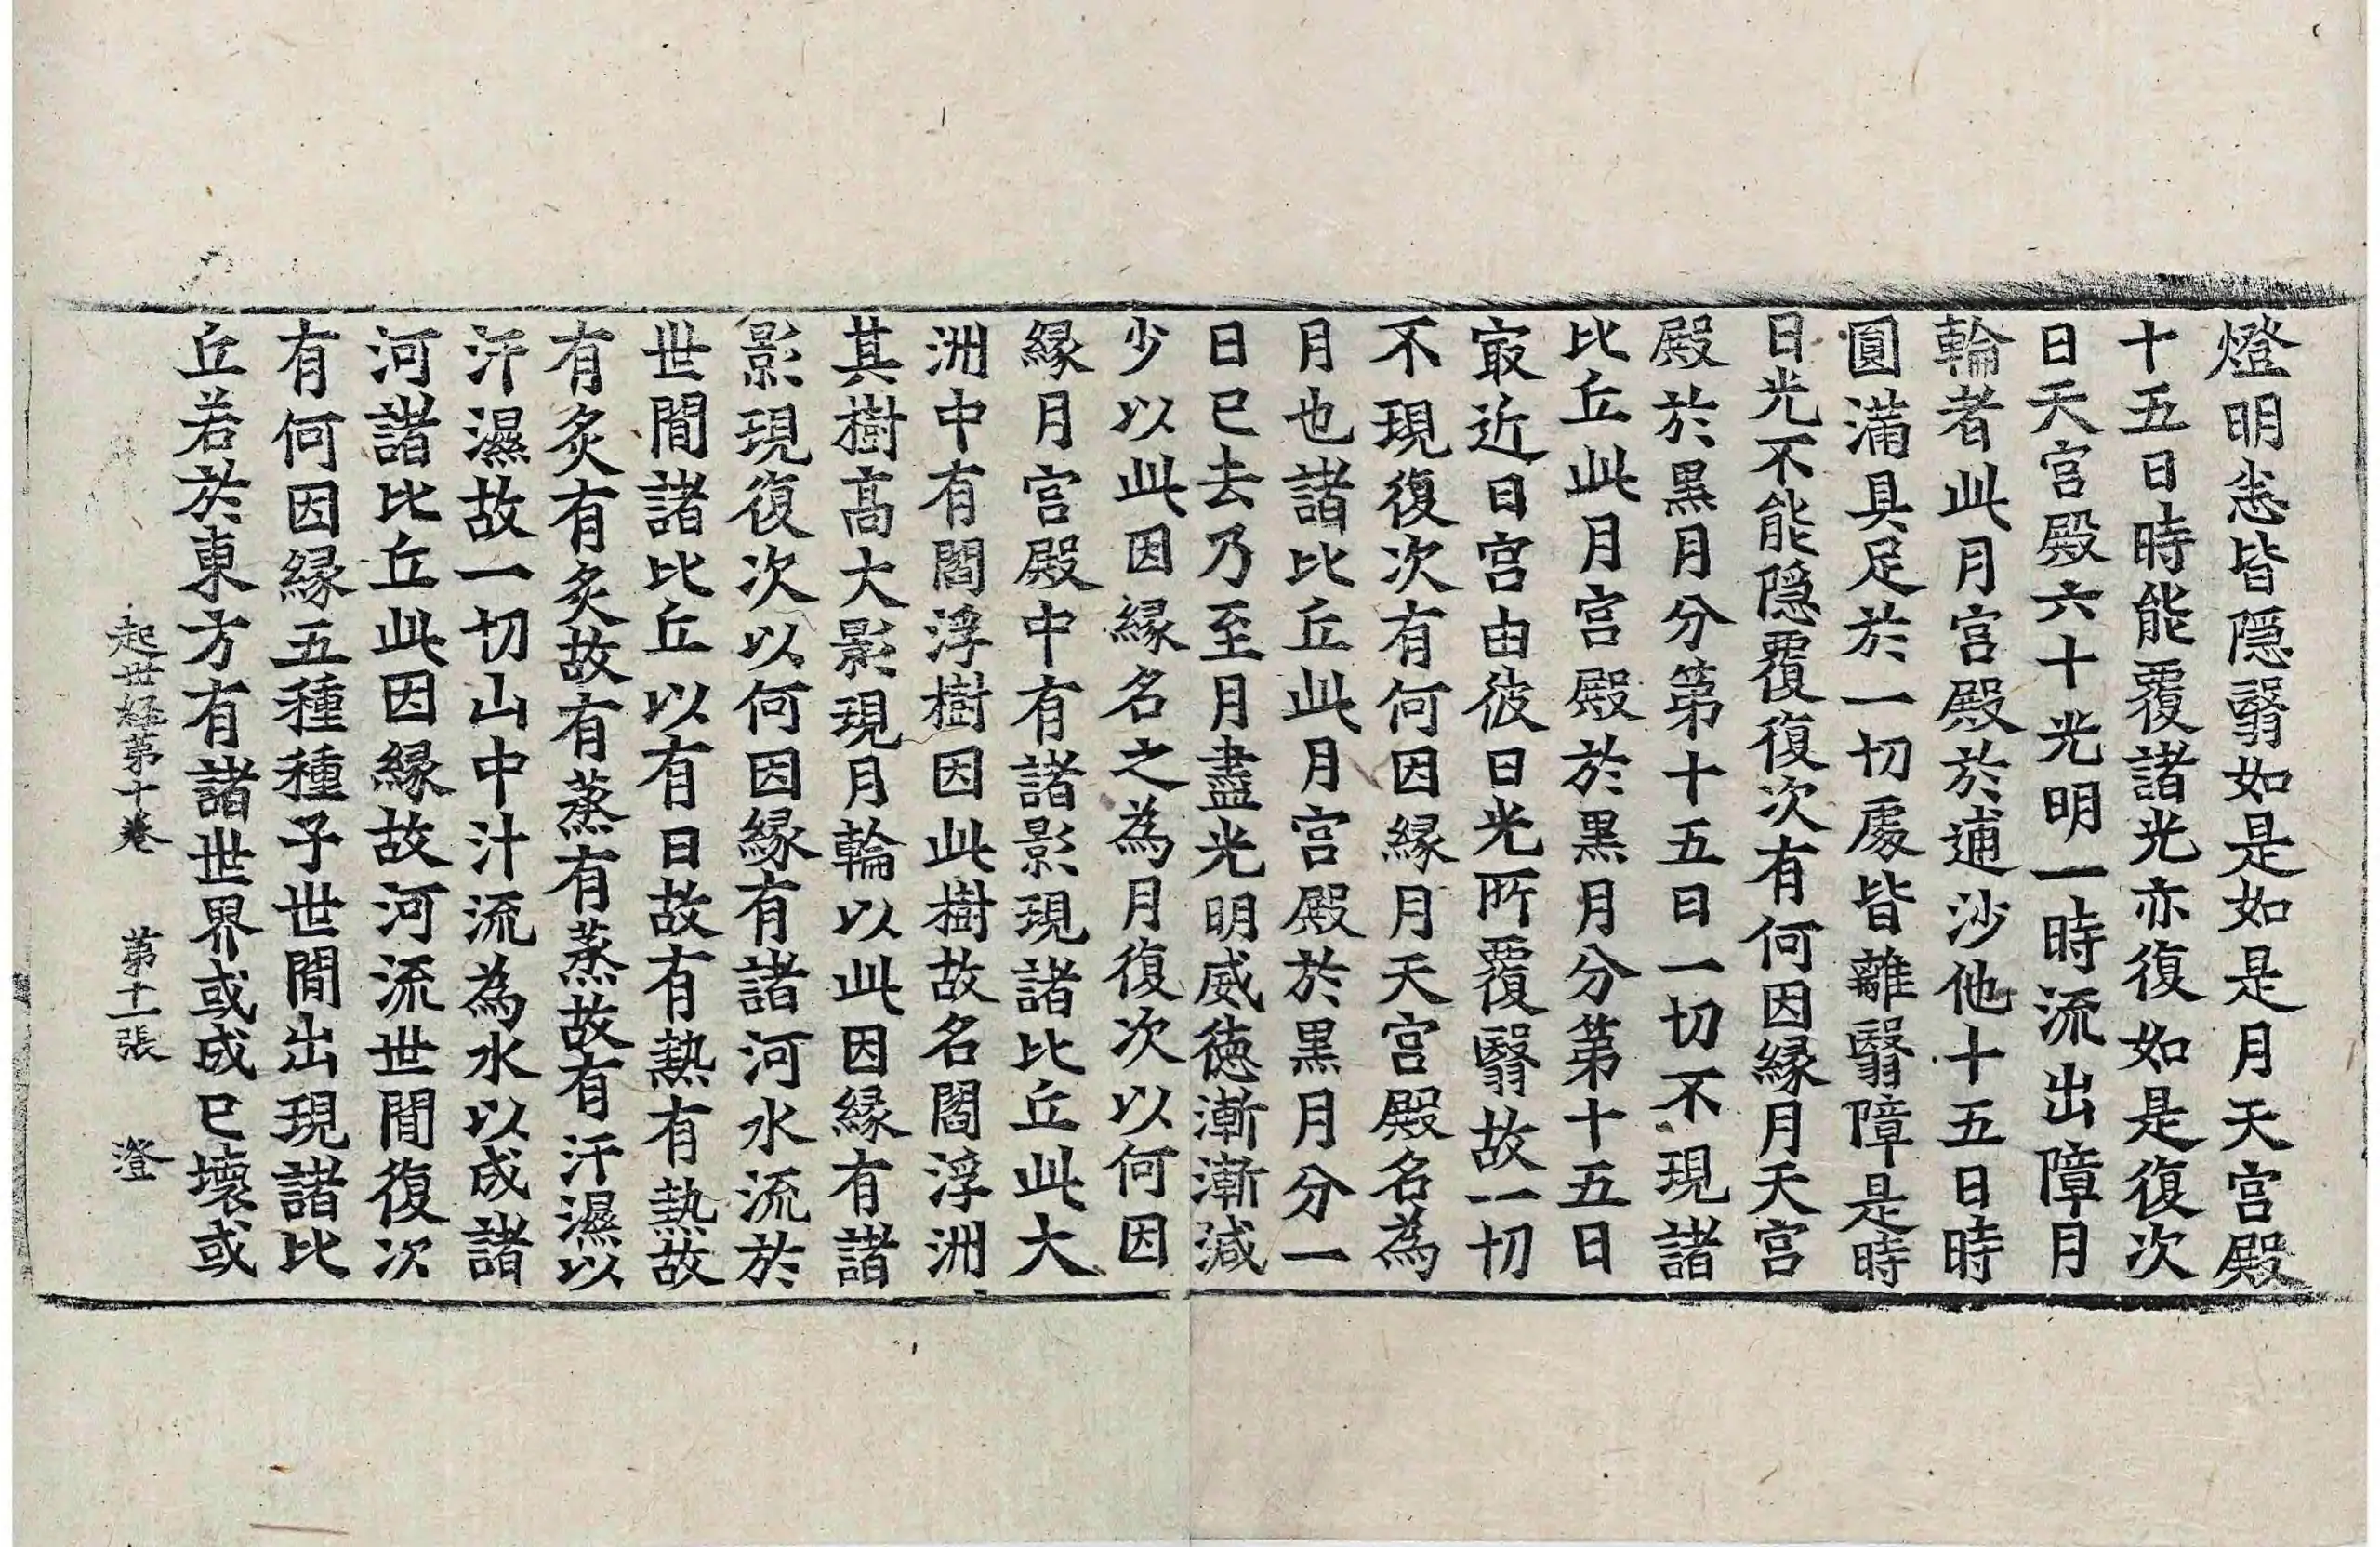 燈明悉皆隱翳如是如是月天宮殿
十五日時能覆諸光亦復如是復次
日天宮殿六十光明一時流出障月
輪者此月宮殿於逋沙他十五日時
圓滿具足於一切處皆離翳障是時
日光不能隱覆復次有何因縁月天宮
殿於黒月分第十五日一切不現諸
比丘此月宮殿於黒月分第十五日
㝡近日宮由彼日光所覆翳故一切
不現復次有何因縁月天宮殿名為
月也諸比丘此月宮殿於黒月分一
日已去乃至月盡光明威徳漸漸減
少以此因縁名之為月復次以何因
縁月宮殿中有諸影現諸比丘此大
洲中有閻浮樹因此樹故名閻浮洲
其樹髙大影現月輪以此因縁有諸
影現復次以何因縁有諸河水流於
世間諸比丘以有日故有熱有熱故
有炙有炙故有蒸有蒸故有汗濕以
汗濕故一切山中汁流為水以成諸
河諸比丘此因縁故河流世間復次
有何因縁五種種子世間出現諸比
丘若於東方有諸世界或成已壞或
起世經第十卷 第十一張 澄